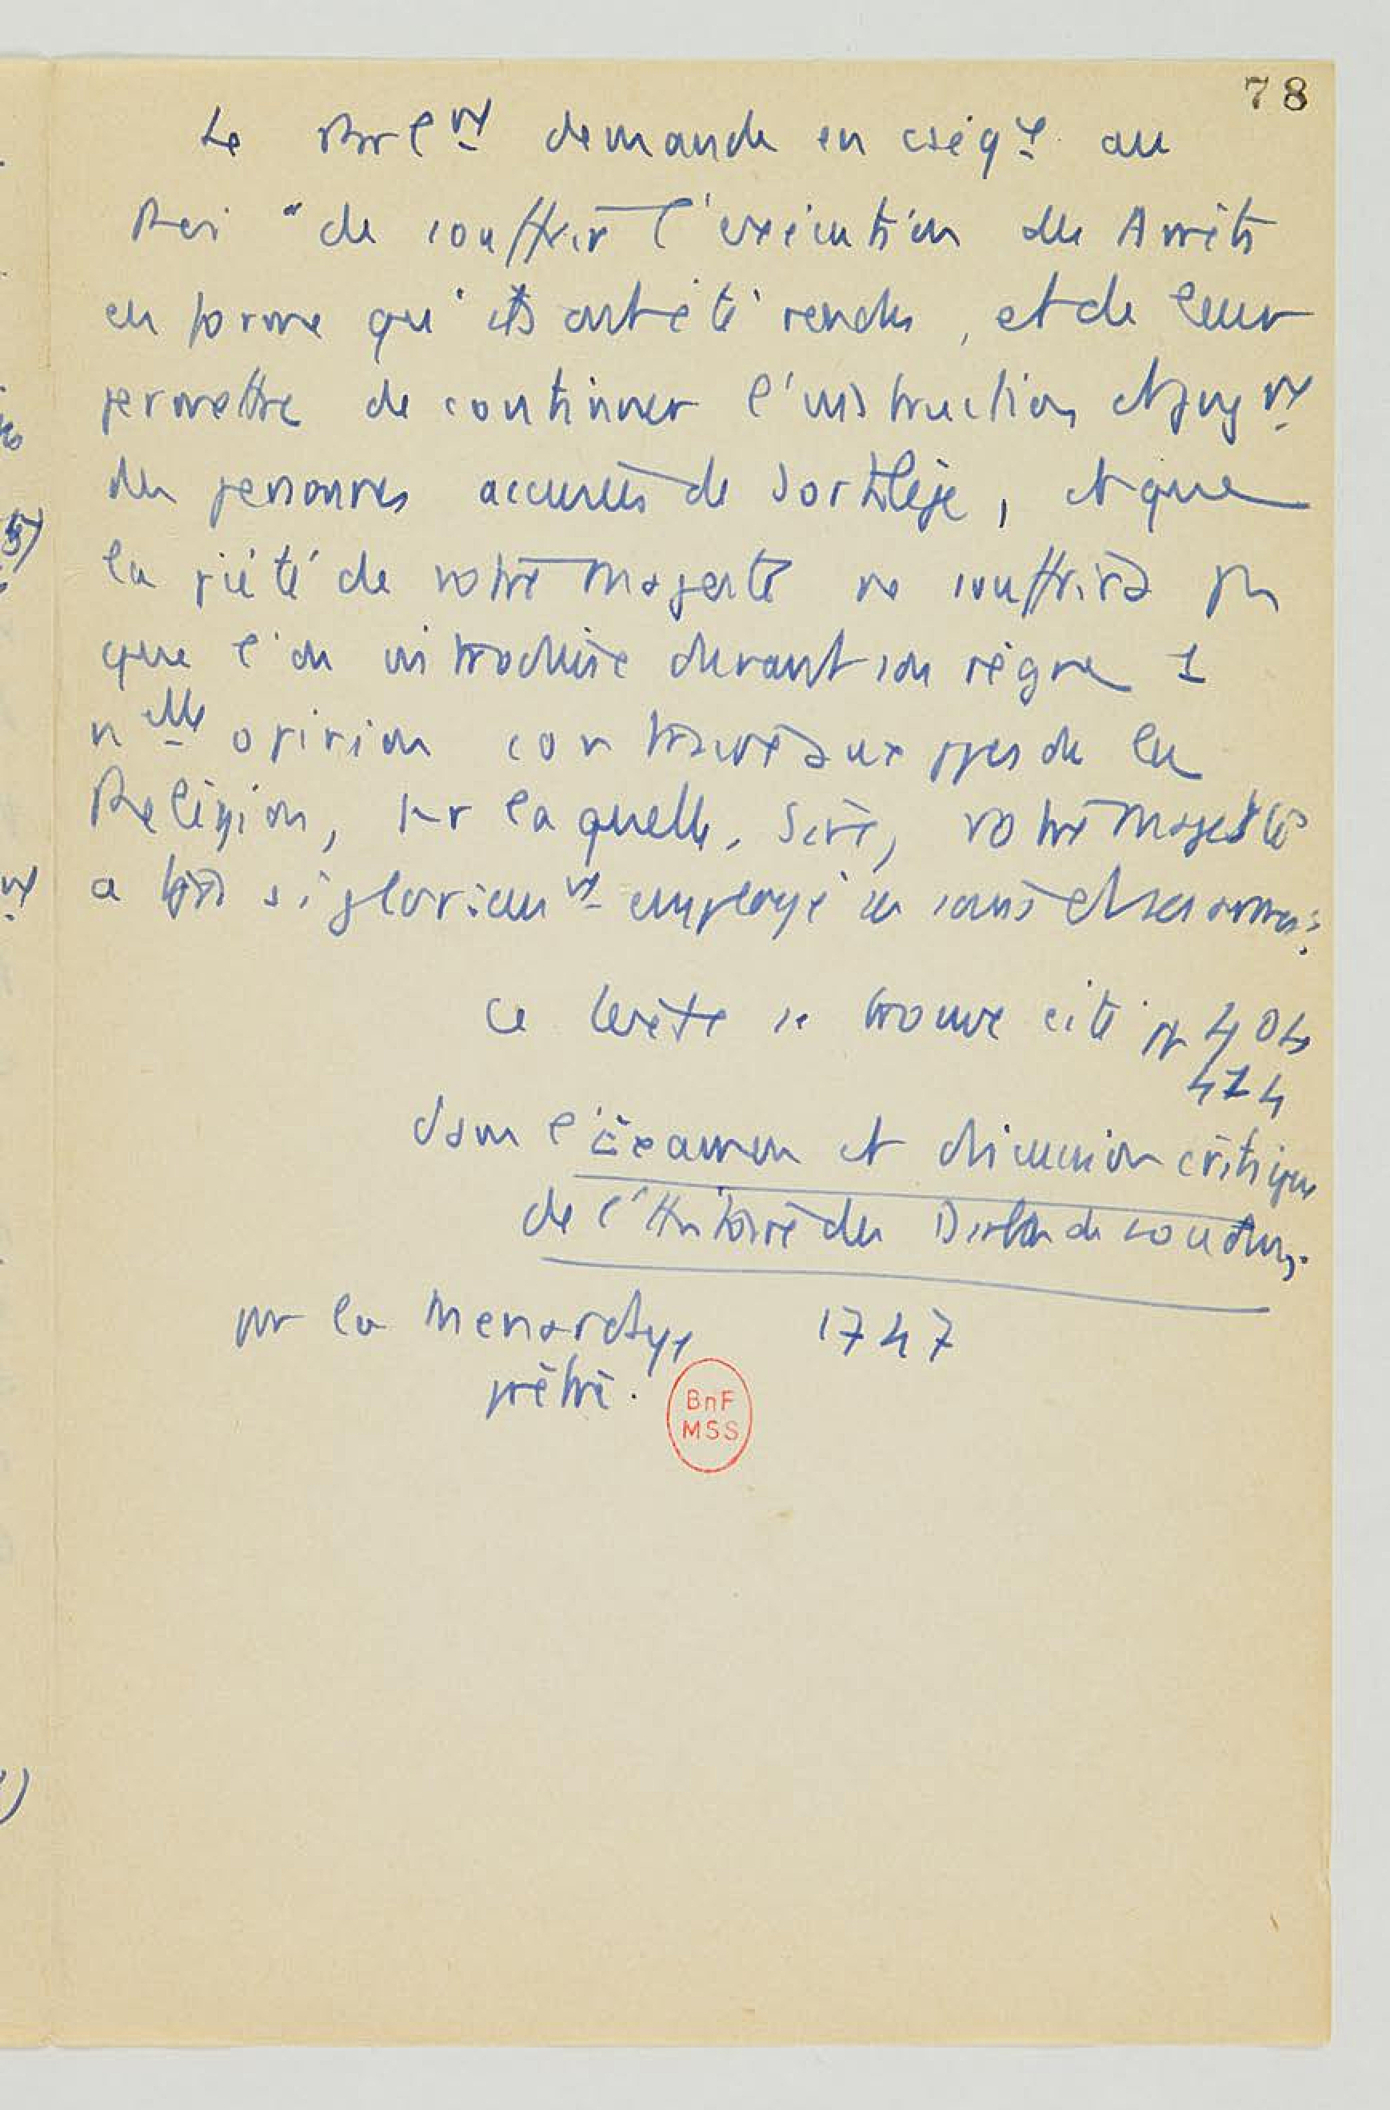 78
Le Parl^mt demande en cséq^ce au
Roi "de souffrir l'exécution des Arrêts
en forme qu'ils ont été rendus, et de leur
permettre de continuer l'instruction et jug^mt
des personnes accusées de sortilège, et que
la piété de votre Majesté ne souffrira pas
que l'on introduise durant son règne 1
n^elle opinion contraire aux ppes de la
Religion, sur laquelle, Sire, votre Majesté
a tjrs si glorieus^mt employé ses soins et ses armes."
Ce texte se trouve cité pp 404
414
dans l'Examen et discussion critique
de l'Histoire des Diables de Loudun.
par la Menardaye
prêtre. 1747
BnF
MSS